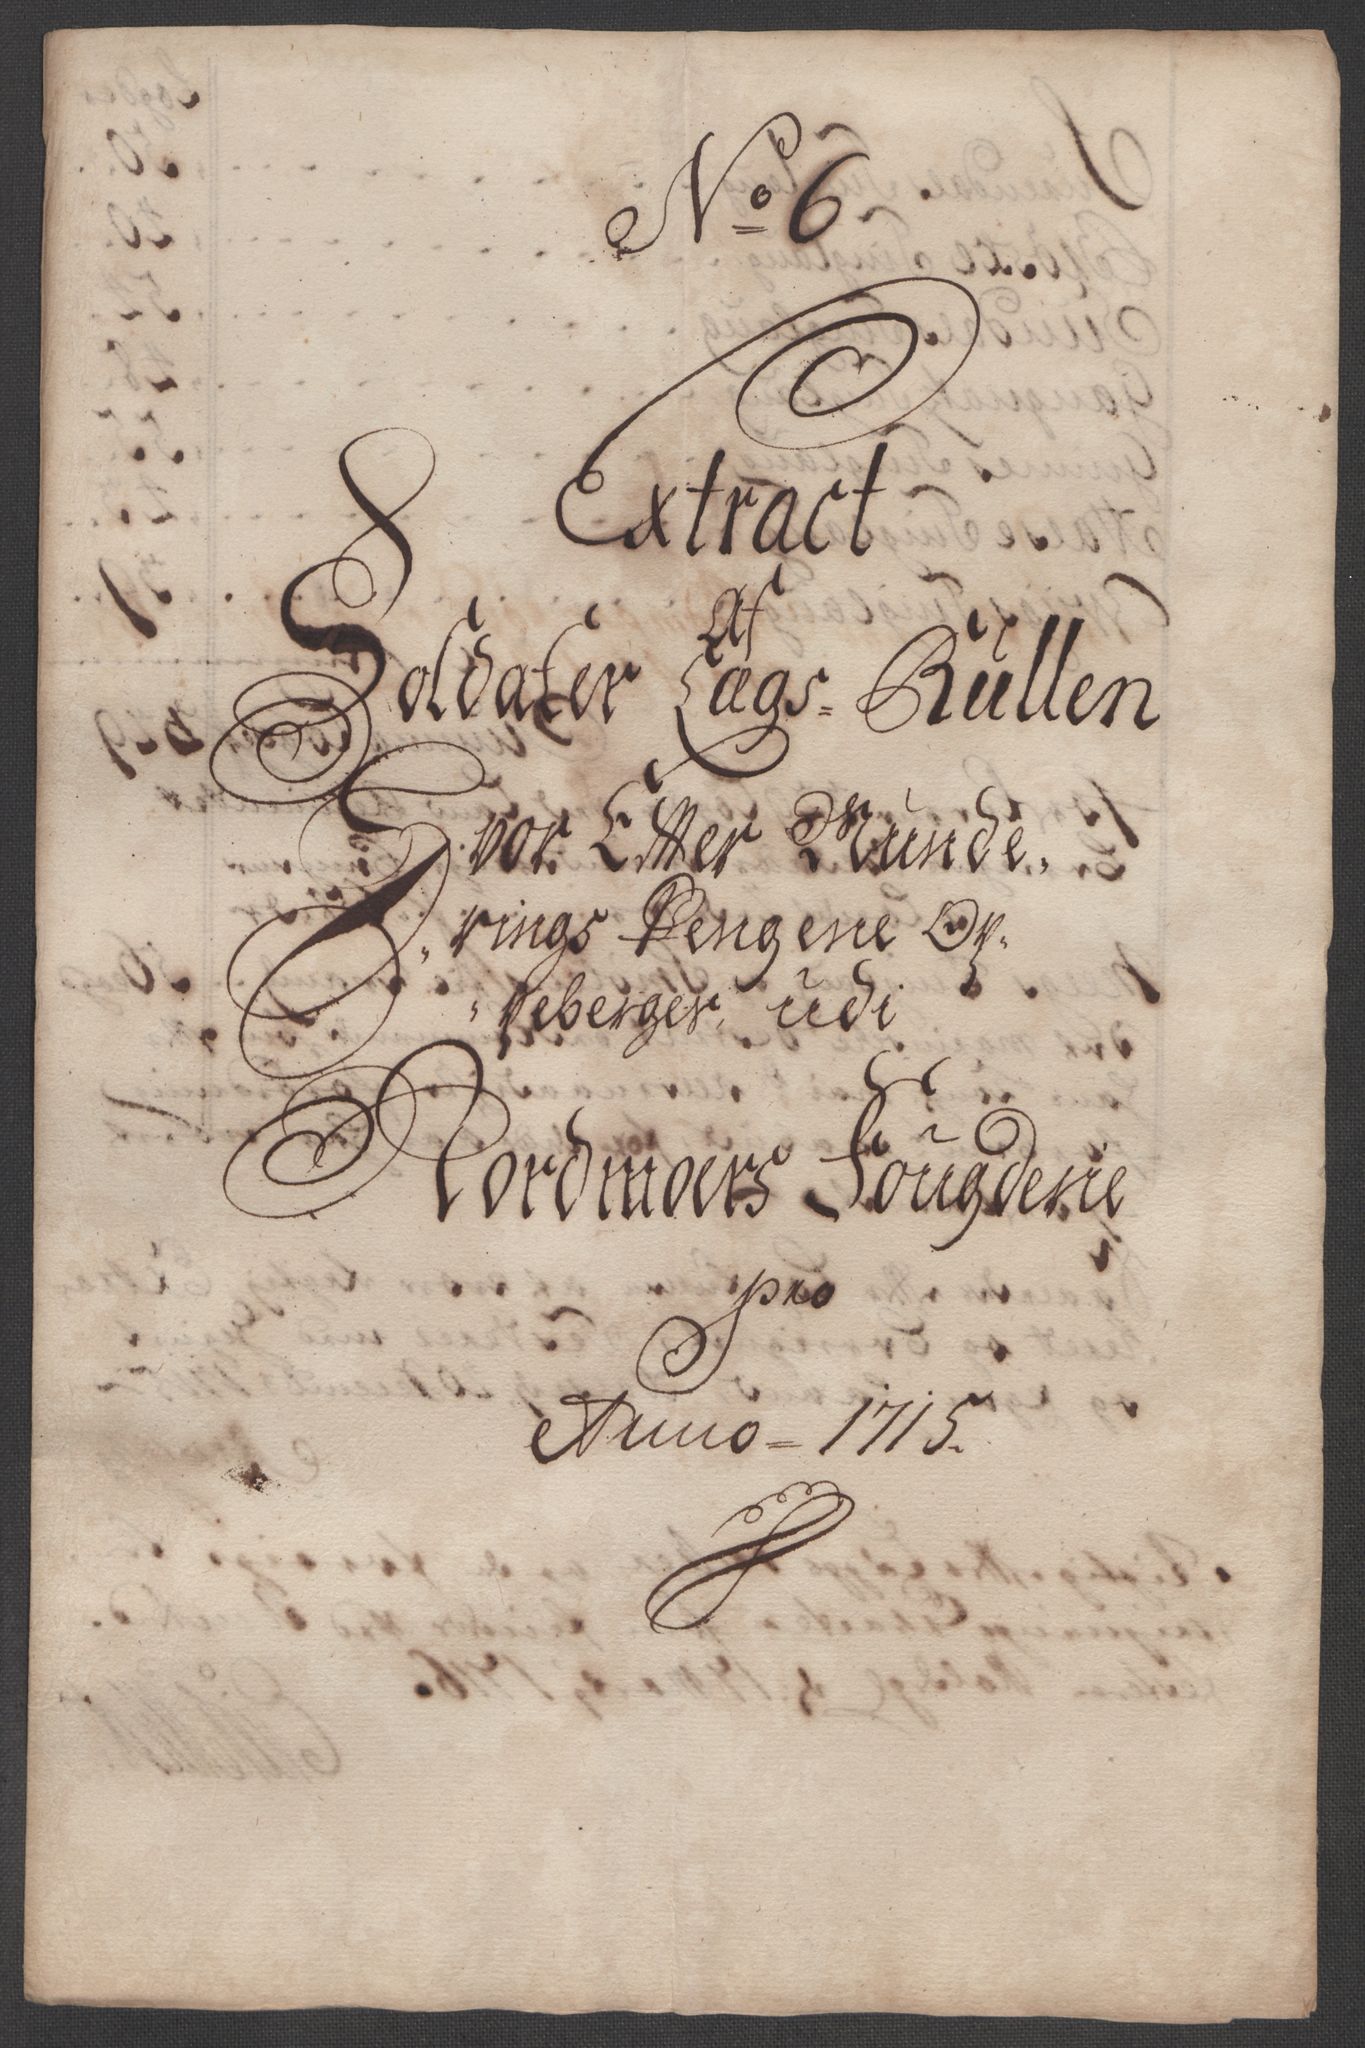 No 6
Extract
Af
Soldater Lægs-Rullen
Hvor Efter Munde,
,rings Pengene Op,
,peberger, udi
Nordmoers Fougderie
pro
Anno = 1715.